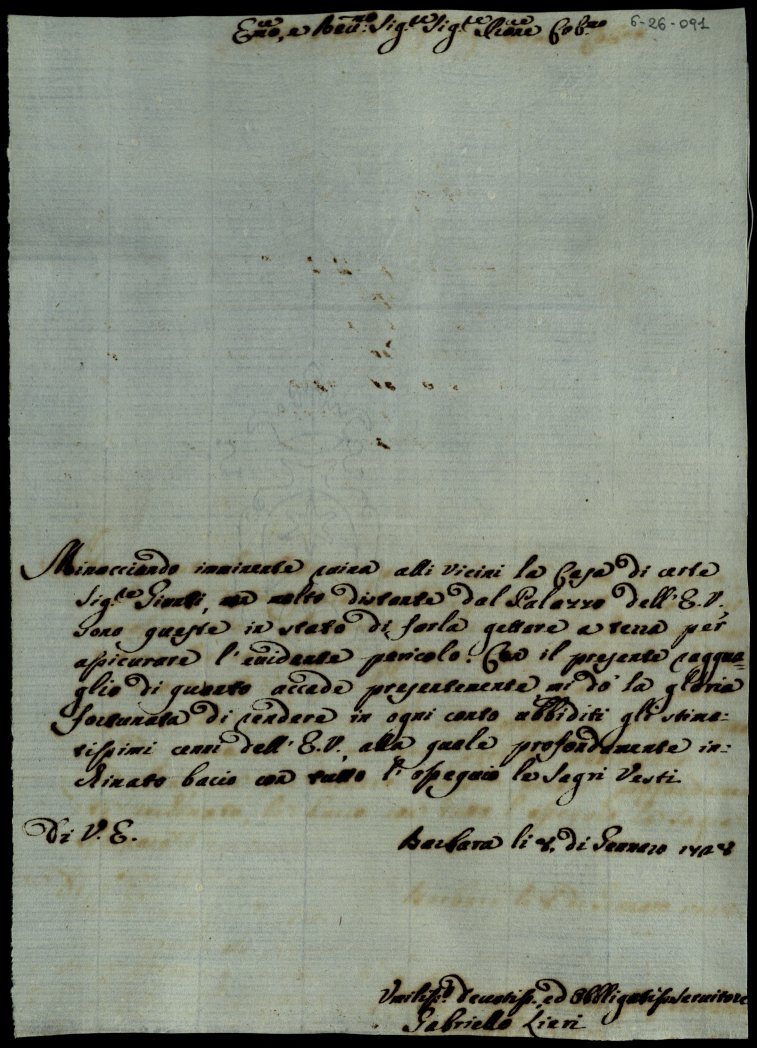 Em̃o, e Reu: mo Sig.re Sig.re Pne Col.mo
6-26-091
Minacciando imminente ruina alli vicini la Casa di certe
Sig.re Gionti, ma molto distante dal Palazzo dell' E. V.
sono queste in stato di farla gettare a terra per
assicurare l'euidente pericolo. Con il presente raggua=
glio di quanto accade presentemente mi dò la gloria
fortunata di rendere in ogni conto ubbiditi gli stima=
tissimi cenni dell' E. V., alla quale profondamente in=
chinato bacio con tutto l'ossequio le Sagri Vesti.
Di V. E.
Barbara li 8. di Gennaro
Vmiliss.o Deuotiss. ed Obbligatiss. Seruitore
Gabriello Lieri